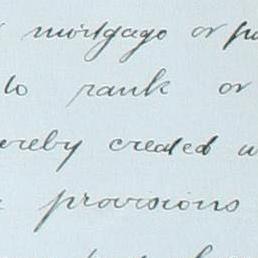 mortgage or
to rank or
created
provisions